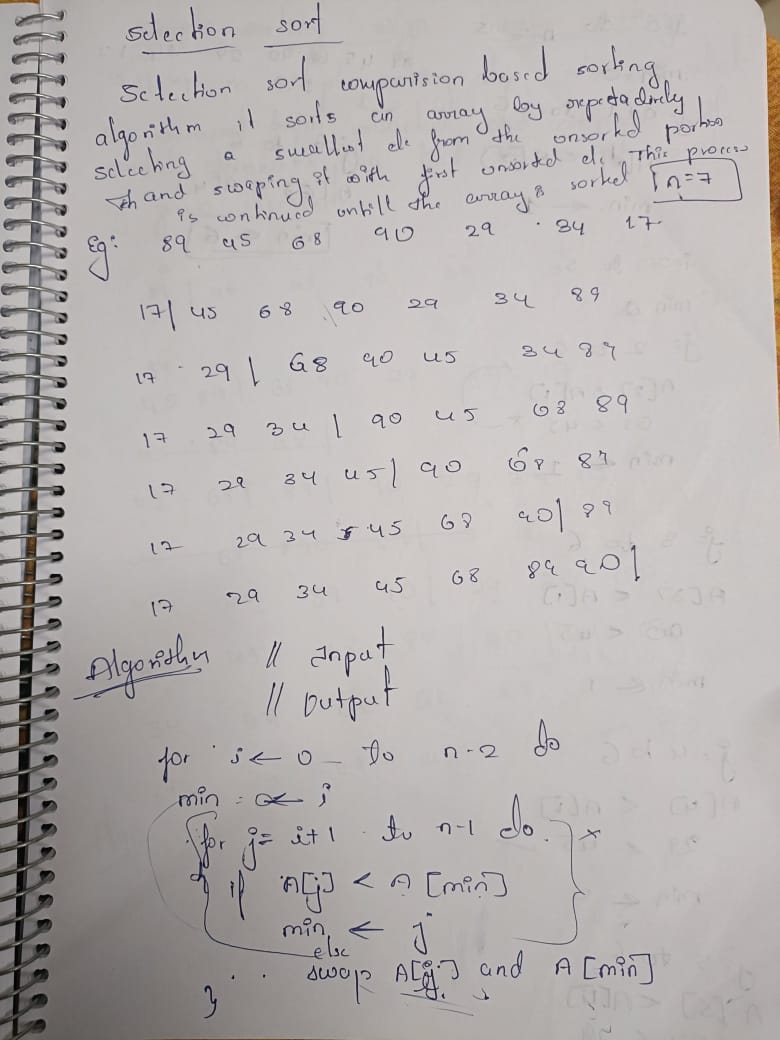 Selection sort
Selection sort comparision based sorting
algorithm it sorts an array by
selecting a smallest ele from the unsorted portion
and swaping it with first unsorted ele. This process
is continued untill the array is sorted n=7
Eg: 89 45 68 90 29 34 17
17| 45 68 90 29 34 89
17 29 | 68 90 45 34 89
17 29 34 | 90 45 68 89
17 29 34 45| 90 68 89
17 29 34 45 68 90| 89
17 29 34 45 68 89 90|
Algorithm // Input
// Output
for i ← 0 to n-2 do
min ← i
for j= i+1 to n-1 do
if A[j] < A[min]
min ← j
else
swap A[] and A[min]
}